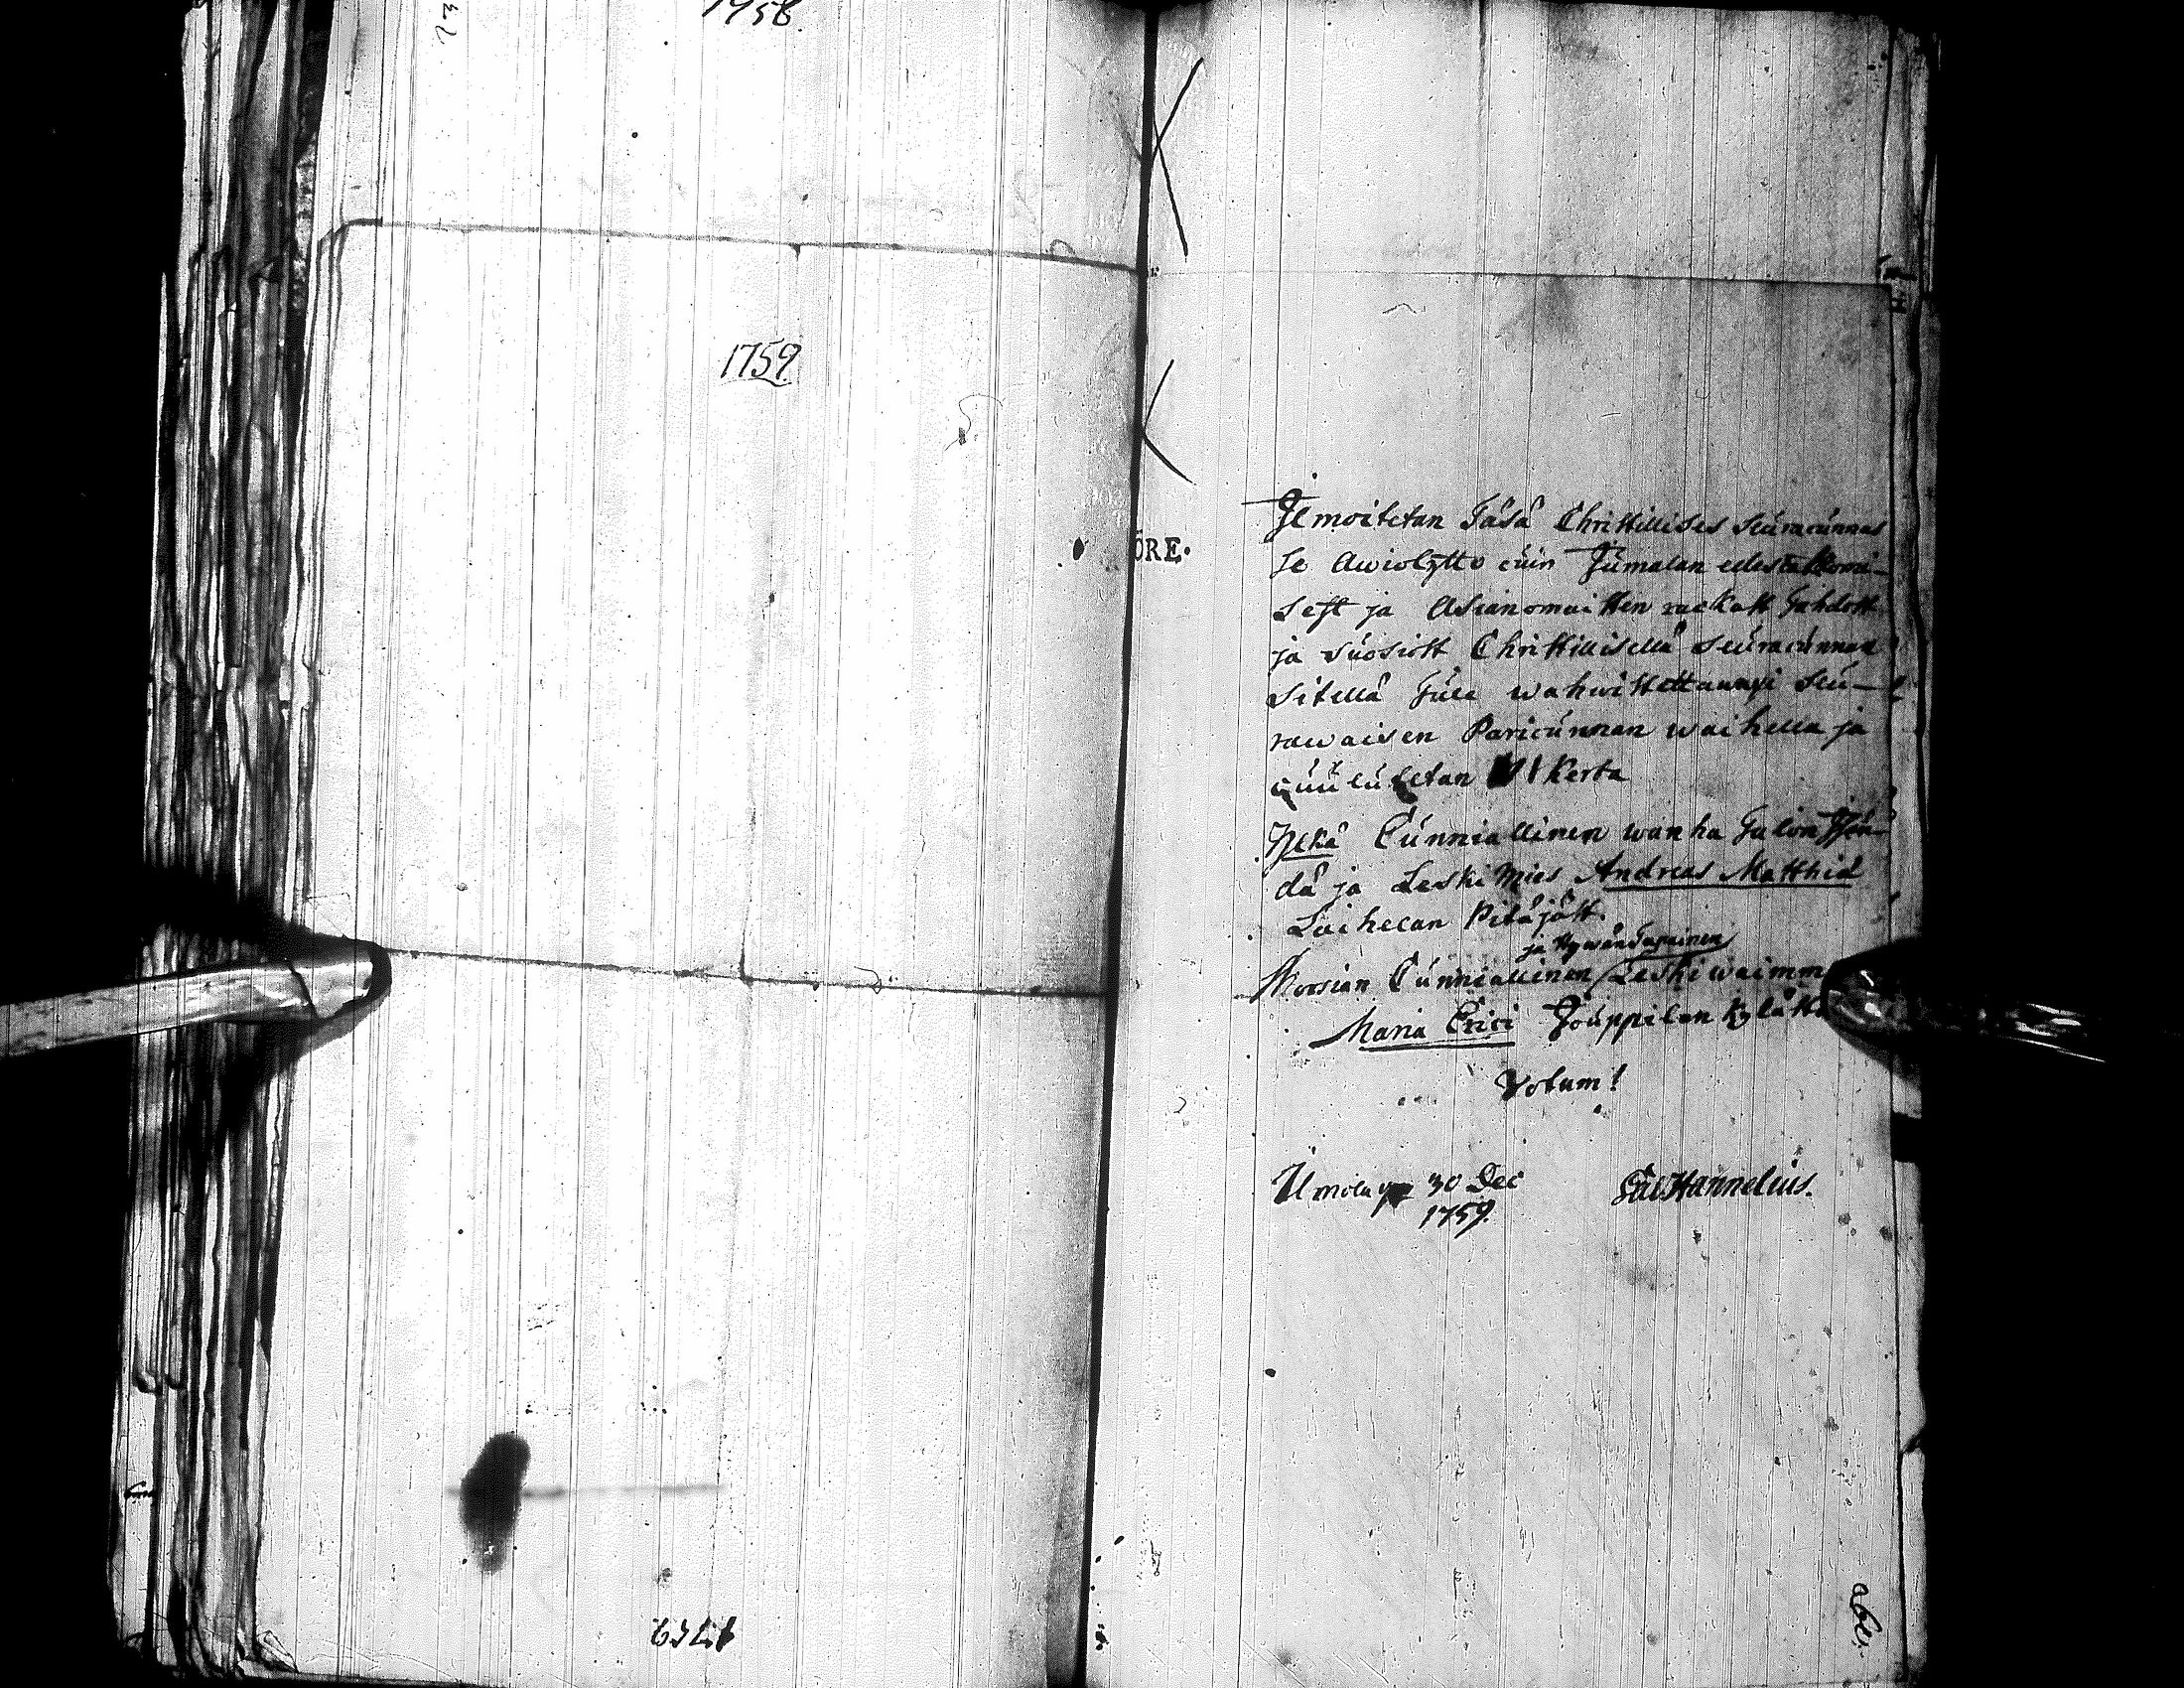 1758
1759
1759
ÖRE.
Ilmoitetan Täsä Christillises seuracunnas
se Awiokytto cuin Jumalan edestakomi-
sest ja Asianomaisten rackast Tahdost
ja suosiost Christillisellä seuracunnan
sitellä Tule wahwistettawaxi seu-
rawaisen Paricunnan waihella ja
cuulutetan 1 Kerta
Yljkä Cunniallinen wanha Talon Isän-
dä ja Leski Mies Andreas Matthiæ
Laihelan Pitäjäst.
ja Hywändapainen
Morsian Cunniallinen Leskiwaimm
Maria Erici Jouppilan Kyläst.
Votum!
Ilmola 30 Dec
1759.
Hannelius.